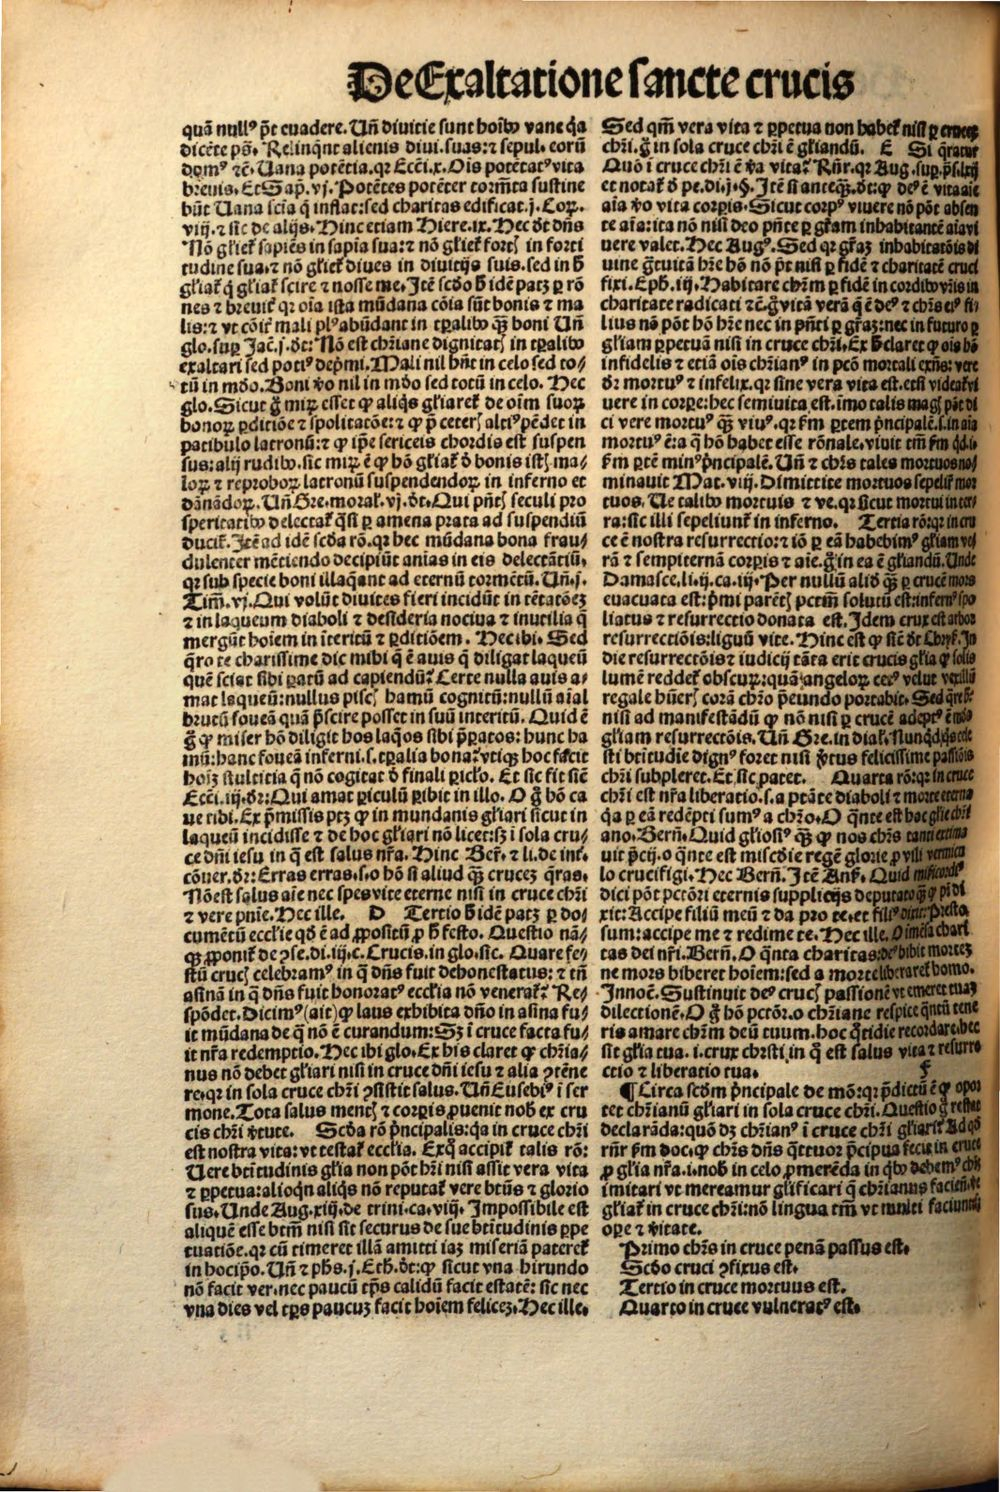 De Exaltatione sancte crucis
quā nullꝰ p̄t euadere. Un̄ diuitie sunt hoībꝰ vane q̇a
dicēte pō. Relinqūt alienis diui. suas: ⁊ sepul. eorū
domꝰ ⁊ē. Uana potētia. qꝛ Ecc̄i. x. Oīs potētatꝰ vita
breuis. Et Sap̄. vj. Potētes potēter torm̄ta sustine
būt Uana sciā q̄ inflat: sed charitas edificat. j. Coꝝ.
viij. ⁊ sic de alijs. Hinc etiam Hiere. ix. Hec d̄t dn̄s
Nō gl̄iet̄ sapiēs in sapīa sua: ⁊ nō gl̄iet̄ fortꝭ in forti
tudine sua. ⁊ nō gl̄iet̄ diues in diuitijs suis. sed in h̄
gl̄iat̄ q̇ gl̄iat̄ scire ⁊ nosse me. Itē scd̄o h̄ idē patꝫ ꝑ rō
nes ⁊ breuit̄ qꝛ oīa ista mūdana cōia sūt bonis ⁊ ma
lis: ⁊ vt cōit̄ mali plꝰ abūdant in tꝑalibꝰ qꝫ boni Un̄
glo. suꝑ Jac̄. j. d̄t: Nō est chr̄iane dignitatꝭ in tꝑalibꝰ
exaltari sed potiꝰ dep̄mi. Mali nil hn̄t in celo sed to⸗
tū in mūdo. Boni v̄o nil in mūdo sed totū in celo. Hec
glo. Sicut g̊ miꝝ esset ꝙ aliq̇s gl̄iaret̄ de oīm suoꝝ
bonoꝝ ꝑditiōe ⁊ spolitatōe: ⁊ ꝙ p̄ ceterꝭ altiꝰ pēdet in
patibulo latronū: ⁊ ꝙ ip̄e sericeis chordis est suspen
sus: alij rudibꝰ. sic miꝝ ē ꝙ hō gl̄iat̄ d̄ bonis istꝭ ma⸗
loꝝ ⁊ reproboꝝ latronū suspendendoꝝ in inferno et
dānādoꝝ. Un̄ Gre. moral̄. vj. d̄t. Qui pn̄tꝭ seculi pro
speritatibꝰ delectat̄ q̄si ꝑ amena prata ad suspendiū
ducit̄. Itē ad idē scd̄a rō. qꝛ hec mūdana bona frau⸗
dulenter mētiendo decipiūt aīas in eis delectātiū.
qꝛ sub specie boni illaq̄ant ad eternū tormētū. Un̄. j.
Tim̄. vj. Qui volūt diuites fieri incidūt in tētatōeꝫ
⁊ in laqueum diaboli ⁊ desideria nociua ⁊ inutilia q̄
mergūt hoīem in īteritū ⁊ ꝑditiōem. Hec ibi. Sed
q̄ro te charissime dic mihi q̄ ē auis q̄ diligat laqueū
quē sciat sibi ꝑatū ad capiendū? Certe nulla auis a⸗
mat laqueū: nullus piscꝭ hamū cognitū: nullū aīal
brutū foueā quā p̄scire posset in suū interitū. Quid ē
g̊ ꝙ miser hō diligit hos laq̄os sibi p̄ꝑatos: hunc ha
mū: hanc foueā inferni. s. tꝑalia bona? vtiqꝫ hoc facit
hoīꝫ stulticia q̄ nō cogitat d̄ finali ꝑicl̄o. Et sic fit sic̄
Ecc̄i. iij. d̄r: Qui amat ꝑiculū ꝑibit in illo. O g̊ hō ca
ue tibi. Ex p̄missis ptꝫ ꝙ in mundanis gl̄iari sicut in
laqueū incidisse ⁊ de hoc gl̄iari nō licet: sꝫ ī sola cru⸗
ce dn̄i iesu in q̄ est salus nr̄a. Hinc Ber̄. ⁊ li. de int̄.
cōuer. d̄r: Erras erras. s. o hō si aliud qꝫ cruceꝫ q̄ras.
Nō est salus aīe nec spes vite eterne nisi in cruce chr̄i
⁊ vere pn̄ie. Hec ille. D Tertio h̄ idē patꝫ ꝑ do⸗
cumētū eccl̄ie qd̄ ē ad ꝓpositū ꝓ h̄ festo. Questio nā⸗
qꝫ ꝓponit̄ de ꝯse. di. iij. c. Crucis. in glo. sic. Quare fe⸗
stū crucꝭ celebramꝰ in q̄ dn̄s fuit dehonestatus: ⁊ tn̄
asinā in q̄ dn̄s fuit honoratꝰ eccl̄ia nō venerat̄? Re⸗
spōdet. Dicimꝰ (ait) ꝙ laus exhibita dn̄o in asina fu⸗
it mūdana de q̄ nō ē curandum: Sꝫ ī cruce facta fu⸗
it nr̄a redemptio. Hec ibi glo. Ex his claret ꝙ chr̄ia⸗
nus nō debet gl̄iari nisi in cruce dn̄i iesu ⁊ alia ꝯtēne
re. qꝛ in sola cruce chr̄i ꝯsistit salus. Un̄ Eusebiꝰ ī ser
mone. Tota salus mentꝭ ⁊ corꝑis ꝓuenit nob̄ ex cru
cis chr̄i v̄tute. Scd̄a rō p̄ncipalis: q̇a in cruce chr̄i
est nostra vita: vt testat̄ eccl̄ia. Ex q̄ accipit̄ talis rō:
Uere btītudinis gl̄ia non pōt hr̄i nisi assit vera vita
⁊ ꝑpetua: alioqn̄ aliq̇s nō reputat̄ vere bt̄us ⁊ glorio
sus. Unde Aug. xiij. de trini. ca. viij. Impossibile est
aliquē esse bt̄m nisi sit securus de sue btītudinis ꝑpe
tuatiōe. qꝛ cū timeret illā amitti iaꝫ miseriā pateret̄
in hoc ip̄o. Un̄ ⁊ ph̄s. j. Eth. d̄t: ꝙ sicut vna hirundo
nō facit ver. nec paucū tp̄s calidū facit estatē: sic nec
vna dies vel tp̄s paucuꝫ facit hoīem feliceꝫ. Hec ille.
Sed qm̄ vera vita ⁊ ꝑpetua non habet̄ nisi ꝑ cruceꝫ
chr̄i. g̊ in sola cruce chr̄i ē gl̄iandū. E Si q̄ratur
Quō ī cruce chr̄i ē v̄a vita? Rn̄r. qꝛ Aug. suꝑ. p̄s. lxij
et notat̄ d̄ pe. di. j. §. Itē si anteqꝫ. d̄t: ꝙ deꝰ ē vita aīe
aīa v̄o vita corꝑis. Sicut corpꝰ viuere nō pōt absen
te aīa: ita nō nisi deo pn̄te ꝑ gr̄am inhabitantē aīa vi
uere valet. Hec Augꝰ. Sed qꝛ gr̄aꝫ inhabitatōis di
uine gr̄tuitā hr̄e hō nō p̄t nisi ꝑ fidē ⁊ charitatē cruci
fixi. Eph. iij. Habitare chr̄m ꝑ fidē in cordibꝰ vr̄is in
charitate radicati ⁊ē. g̊ vitā verā q̄ ē deꝰ ⁊ chr̄s eiꝰ fi⸗
lius nō pōt hō hr̄e nec in pn̄ti ꝑ gr̄aꝫ: nec in futuro ꝑ
gl̄iam ꝑpetuā nisi in cruce chr̄i. Ex h̄ claret ꝙ oīs hō
infidelis ⁊ etiā oīs chr̄ianꝰ in pctō mortali exn̄s: vere
d̄r mortuꝰ ⁊ infelix. qꝛ sine vera vita est. etsi videat̄ vi
uere in corꝑe: hec semiuita est. īmo talis magꝭ pōt di
ci vere mortuꝰ qꝫ viuꝰ. qꝛ fm̄ ꝑtem p̄ncipalē. s. in aīa
mortuꝰ ē: a q̄ hō habet esse rōnale. viuit tm̄ fm̄ qd̄. i.
fm̄ ꝑtē minꝰ p̄ncipalē. Un̄ ⁊ chr̄s tales mortuos no⸗
minauit Mat. viij. Dimittite mortuos sepelir̄ mor
tuos. Ue talibꝰ mortuis ⁊ ve. qꝛ sicut mortui in ter⸗
ra: sic illi sepeliunt̄ in inferno. Tertia rō: qꝛ in cru
ce ē nostra resurrectio: ⁊ iō ꝑ eā habebimꝰ gl̄iam ve⸗
rā ⁊ sempiternā corꝑis ⁊ aīe. g̊ in ea ē gl̄iandū. Unde
Damasce. li. ij. ca. iij. Per nullū aliud qꝫ ꝑ crucē mors
euacuata est: p̄mi parētꝭ pctm̄ solutū est: infernꝰ spo
liatus ⁊ resurrectio donata est. Idem crux est arbor
resurrectiōis: lignū vite. Hinc est ꝙ sic̄ d̄t Chry̅. In
die resurrectōis ⁊ iudicij tāta erit crucis gl̄ia ꝙ solis
lumē reddet̄ obscuꝝ: quā angeloꝝ cetꝰ velut vexillū
regale hūerꝭ corā chr̄o p̄eundo portabit. Sed
nisi ad manifestādū ꝙ nō nisi ꝑ crucē adeptꝰ ē
gl̄iam resurrectōis. Un̄ Gre. in dial̄. Nunqd̄
sti btītudīe dignꝰ foret nisi v̄tus felicissime passiōis
chr̄i subpleret. Et sic patet. Quarta rō: qꝛ in cruce
chr̄i est nr̄a liberatio. s. a ptāte diaboli ⁊ morte eterna
q̇a ꝑ eā redēpti sumꝰ a chr̄o. O q̄nte est hoc gl̄ie chr̄i
ano. Bern̄. Quid gl̄iosiꝰ qꝫ ꝙ nos chr̄s tanti extima
uit p̄cij. o q̄nte est miscd̄ie regē glorie ꝓ vili vermicu
lo crucifigi. Hec Bern̄. Itē Ans̄. Quid misericordiꝰ
dici pōt pctōri eternis supplicijs deputato
xit: Accipe filiū meū ⁊ da pro te. et filiꝰ dicit: Presto
sum: accipe me ⁊ redime te. Hec ille. O imēsa chari
tas dei nr̄i. Bern̄. O q̄nta charitas: deꝰ bibit morteꝫ
ne mors biberet hoīem: sed a morte liberaret̄ homo.
Innoc̄. Sustinuit deꝰ crucꝭ passionē vt emeret tuaꝫ
dilectionē. O g̊ hō pctōr. o chr̄iane respice q̄ntū tene
ris amare chr̄m deū tuum. hoc q̄tidie recordare. hec
sit gl̄ia tua. i. crux chr̄isti in q̄ est salus vita ⁊ resurre
ctio ⁊ liberatio tua. F
¶ Circa scd̄m p̄ncipale de mō: qꝛ p̄dictū ē ꝙ opor
tet chr̄ianū gl̄iari in sola cruce chr̄i. Questio g̊ restat
declarāda: quō dꝫ chr̄ianꝰ ī cruce chr̄i gl̄iari? Ad qd̄
rn̄r fm̄ doc. ꝙ chr̄s dn̄s q̄ttuor p̄cipua fecit in cruce
ꝓ gl̄ia nr̄a. i. nob̄ in celo ꝓmerēda in q̇bꝰ debemꝰ chr̄m
imitari vt mereamur gl̄ificari q̄ chr̄ianus faciens. ve
gl̄iat̄ in cruce chr̄i: nō lingua tm̄ vt multi faciunt: sed
oꝑe ⁊ v̄itate.
Primo chr̄s in cruce penā passus est.
Scd̄o cruci ꝯfixus est.
Tertio in cruce mortuus est.
Quarto in cruce vulneratꝰ est.